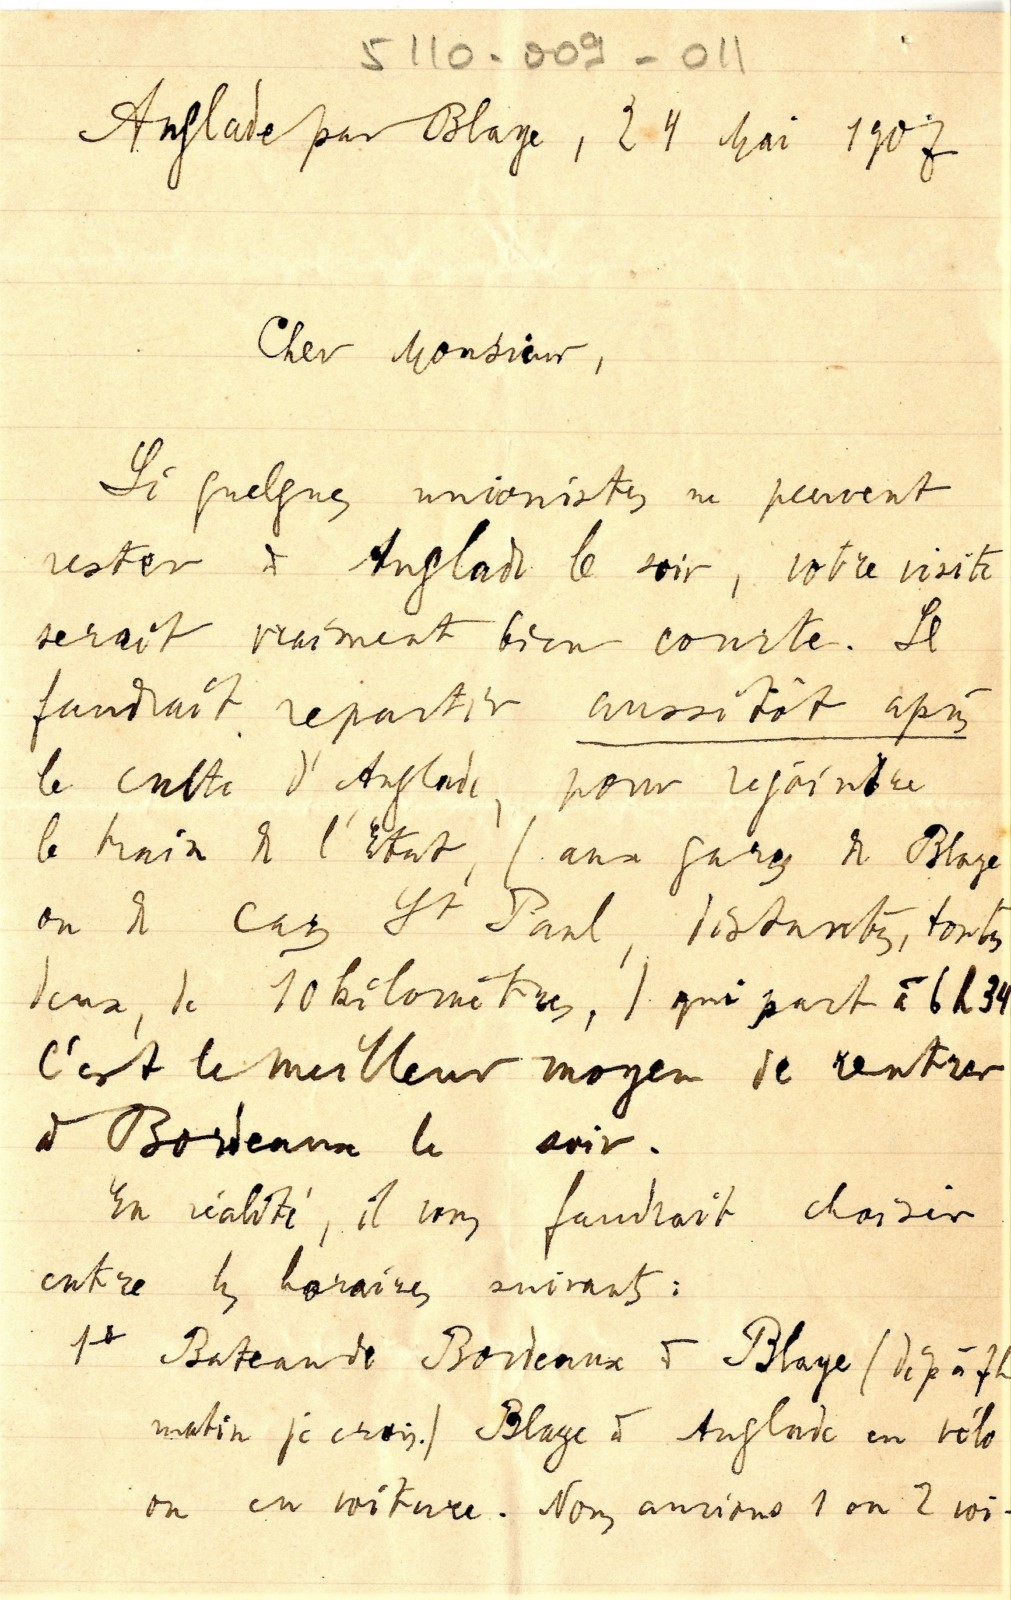 5110-009-011
Anglade par Blaye, 24 Mai 1907
Cher Monsieur,
Si quelques unionistes ne peuvent
rester à Anglade le soir, votre visite
serait vraiment bien courte. Il
faudrait repartir aussitôt après
le culte d'Anglade, pour rejoindre
le train de l'Etat, (aux gares de Blaye
ou de Cars St Paul, distantes, toutes
deux, de 10 kilomètres,) qui part à 6h34
C'est le meilleur moyen de rentrer
à Bordeaux le soir.
En réalité, il vous faudrait choisir
entre les horaires suivants:
1º Bateau de Bordeaux à Blaye (dép à 7h
matin je crois.) Blaye à Anglade en vélo
ou en voiture. Nous aurions 1 ou 2 voi-